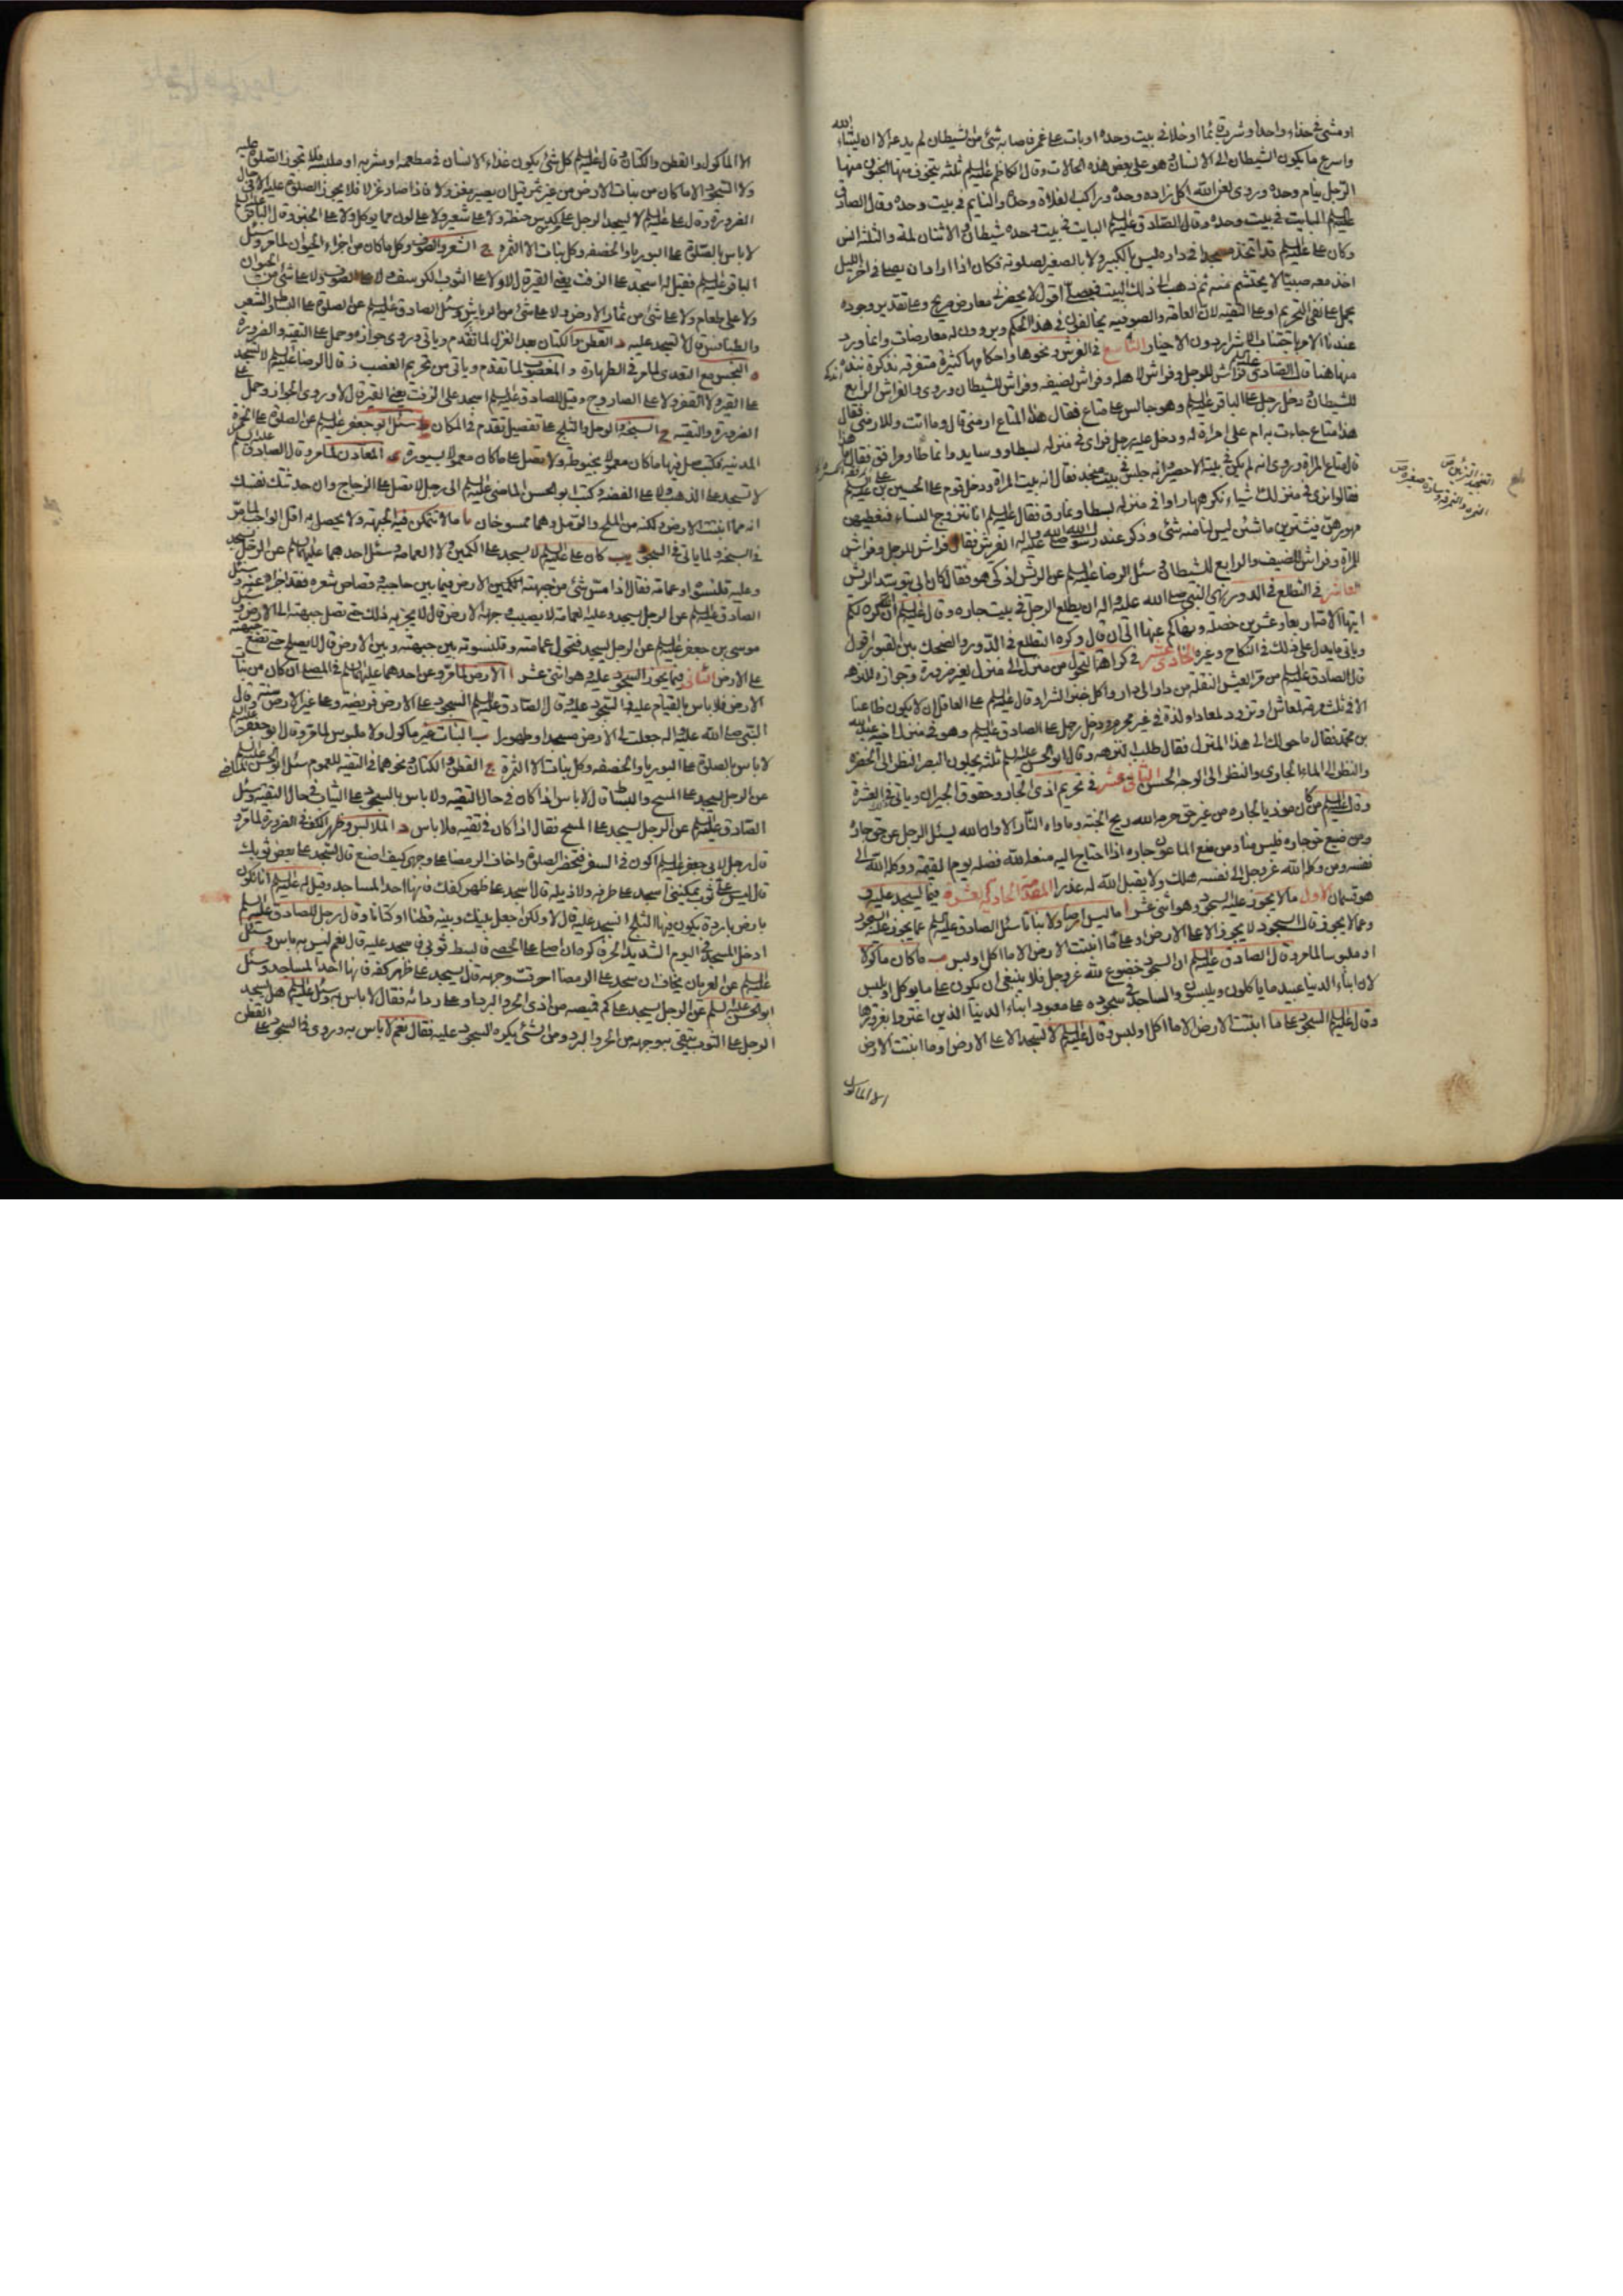 او مشى في حذاء واحد او شرب قائما او خلا في بيت وحده او بات على غمر فاصابه شئ من الشيطان لم يدعه الا ان يشاء الله
واسرع ما يكون الشيطان الى الانسان وهو على بعض هذه الحالات وقال الكاظم عليه السلم ثلثة يتخوف منها الجنون منها
الرجل ينام وحده وروى لعن الله آكل زاده وحده وراكب الفلاة وحده والنايم في بيت وحده وقال الصادق
عليه السلم البايت في بيت وحده وقال الصادق عليه السلم البايت في بيت وحده شيطان والاثنان لمة والثلثة انس
وكان على عليه السلم قد اتخذ مسجدا في داره ليس بالكبير ولا بالصغير لصلوته فكان اذا اراد ان يصلي في آخر الليل
اخذ معه صبيا لا يحتشم منه ثم ذهب الى ذلك البيت فيصلي اقول لا يحضرني معارض صريح وعلى تقدير وجوده
يحمل على نفى التحريم او على التقية لان العامة والصوفية يخالفون في هذا الحكم ويروون له معارضات وانما ورد
عندنا الاربا الاخبار التاسع في الفرش ونحوها واحكامها كثيرة متفرقة نذكر نبذة
منها هنا قال الصادق عليه السلم فراش للرجل وفراش لاهله وفراش لضيفه وفراش للشيطان وروى والفراش الرابع
للشيطان ودخل رجل على الباقر عليه السلم وهو جالس على متاع فقال هذا المتاع ارمني قال وما انت وللارمني فقال
هذا متاع جاءت به ام علي امراة له ودخل عليه رجل فراى في منزله بسطا ووسايد وانماطا ومرافق فقال ما هذا
قال متاع المراة وروى انه لم يكن في بيته الا حصير وانه جلس في بيت منجد فقال انه بيت المراة ودخل قوم على الحسين بن علي عليه السلم
فقالوا نرى في منزلك اشياء نكرهها راوا في منزله بسطا ونمارق فقال عليه السلم انا نتزوج النساء فنعطيهن
مهورهن فيشترين ما شئن ليس لنا منه شئ وذكر عند رسول الله صلى الله عليه واله الفرش فقال فراش للرجل وفراش
للمراة وفراش للضيف والرابع للشيطان وسئل الرضا عليه السلم عن الريش اذكي هو فقال كان ابي يتوسد الريش
العاشر في التطلع في الدور نهى النبي صلى الله عليه واله ان يطلع الرجل في بيت جاره وقال عليه السلم ان الله كره لكم
ايتها الامة اربعا وعشرين خصلة ونهاكم عنها الى ان قال وكره التطلع في الدور والضحك بين القبور اقول
وياتي ما يدل على ذلك في النكاح وغيره الحادي عشر في كراهة التحول من منزل الى منزل لغير ضرورة وجوازه للنزهة
قال الصادق عليه السلم من مر العيش النقلة من دار الى دار واكل خبز الشرا وقال عليه السلم على العاقل ان لا يكون ظاعنا
الا في ثلث مرمة لمعاش او تزود لمعاد او لذة في غير محرم ودخل رجل على الصادق عليه السلم وهو في منزل اخيه عبد الله
بن محمد فقال ما حولك الى هذا المنزل فقال طلب النزهة وقال ابو الحسن عليه السلم ثلثة يجلون البصر النظر الى الخضرة
والنظر الى الماء الجاري والنظر الى الوجه الحسن الثاني عشر في تحريم اذى الجار وحقوق الجيران وياتي في العشرة
وقال عليه السلم من كان موذيا لجاره من غير حق حرمه الله ريح الجنة وماواه النار الا وان الله يسئل الرجل عن حق جاره
ومن ضيع حق جاره فليس منا ومن منع الماعون جاره اذا احتاج اليه منعه الله فضله يوم القيمة ووكله الله الى
نفسه ومن وكله الله عز وجل الى نفسه هلك ولا يقبل الله له عذرا المقصد الحادي عشر فيما يسجد عليه وفي
هو قسمان الاول ما لا يجوز عليه السجود وهو اثنى عشر ا ما ليس ارضا ولا نباتا سئل الصادق عليه السلم عما يجوز عليه السجود
وعما لا يجوز قال السجود لا يجوز الا على الارض او على ما انبتت الارض الا ما اكل او لبس ب ما كان ماكولا
او ملبوسا لما مر وقال الصادق عليه السلم ان السجود خضوع لله عز وجل فلا ينبغي ان يكون على ما يوكل او يلبس
لان ابناء الدنيا عبيد ما ياكلون ويلبسون والساجد في سجوده على معبود ابناء الدنيا الذين اغتروا بغرورها
وقال عليه السلم السجود على ما انبتت الارض الا ما اكل او لبس وقال عليه السلم لا تسجد الا على الارض او ما انبتت الارض
الا الماكول
الا الماكول والقطن والكتان وقال عليه السلم كل شئ يكون غذاء الانسان في مطعمه او مشربه او ملبسه فلا تجوز الصلوة عليه
ولا السجود الا ما كان من نبات الارض من غير ثمر قبل ان يصير مغزولا فاذا صار غزلا فلا يجوز الصلوة عليه الا في حال
الضرورة وقال على عليه السلم لا يسجد الرجل على كدس حنطة ولا على شعير ولا على لون مما يوكل ولا على الخبز وقال الباقر عليه السلم
لا باس بالصلوة على البوريا والخصفة وكل نبات الا الثمرة ج الشعر والصوف وكل ما كان من اجزاء الحيوان لما مر وسئل
الباقر عليه السلم فقيل له اسجد على الزفت يعني القير قال لا ولا على الثوب الكرسف ولا على الصوف ولا على شئ من الحيوان
ولا على طعام ولا على شئ من ثمار الارض ولا على شئ من الرياش وسئل الصادق عليه السلم عن الصلوة على البساط والشعر
والطنافس قال لا تسجد عليه د القطن والكتان بعد الغزل لما تقدم وياتي وروى جوازه وحمل على التقية والضرورة
ه النجس مع التعدى لما مر في الطهارة و المغصوب لما تقدم وياتي من تحريم الغصب ز قال الرضا عليه السلم لا تسجد
على القير ولا القفر ولا على الصاروج وقيل للصادق عليه السلم اسجد على الزفت يعني القير قال لا وروى الجواز وحمل على
الضرورة والتقية ح السبخة والوحل والثلج على تفصيل تقدم في المكان ط سئل ابو جعفر عليه السلم عن الصلوة على الخمرة
المدنية فكتب صل فيها ما كان معمولا بخيوطة ولا تصل على ما كان معمولا بسيورة ى المعادن لما مر وقال الصادق عليه السلم
لا تسجد على الذهب ولا على الفضة وكتب ابو الحسن الماضي عليه السلم الى رجل لا تصل على الزجاج وان حدثتك نفسك
انه مما انبتت الارض ولكنه من الملح والرمل وهما ممسوخان يا ما لا تتمكن فيه الجبهة ولا يحصل به اقل الواجب لما مر
في السبخة ولما ياتي في السجود يب كان على عليه السلم لا يسجد على الكمين ولا العمامة وسئل احدهما عليهما السلم عن الرجل يسجد
وعليه قلنسوة او عمامة فقال اذا مس شئ من جبهته الارض فيما بين حاجبيه وقصاص شعره فقد اجزا عنه وسئل
الصادق عليه السلم عن الرجل يسجد وعليه العمامة لا يصيب وجهه الارض قال لا يجزيه ذلك حتى تصل جبهته الى الارض وسئل
موسى بن جعفر عليه السلم عن الرجل يسجد فتحول عمامته وقلنسوته بين جبهته وبين الارض قال لا يصلح حتى تضع جبهته
على الارض الثاني فيما يجوز السجود عليه وهو اثنى عشر ا الارض لما مر وعن احدهما عليهما السلم في المصلى ان كان من نبات
الارض فلا باس بالقيام عليه والسجود عليه وقال الصادق عليه السلم السجود على الارض فريضة وعلى غير الارض سنة وقال
النبي صلى الله عليه واله جعلت لي الارض مسجدا وطهورا ب النبات غير ماكول ولا ملبوس لما مر وقال ابو جعفر عليه السلم
لا باس بالصلوة على البوريا والخصفة وكل نبات الا الثمرة ج القطن والكتان ونحوهما في التقية للعموم سئل ابو الحسن الماضي عليه السلم
عن الرجل يسجد على المسح والبساط قال لا باس اذا كان في حال التقية ولا باس بالسجود على الثياب في حال التقية وسئل
الصادق عليه السلم عن الرجل يسجد على المسح فقال اذا كان في تقية فلا باس د الملابس وظهر الكف في الضرورة لما مر و
قال رجل لابي جعفر عليه السلم اكون في السفر فتحضر الصلوة واخاف الرمضا على وجهي كيف اصنع قال تسجد على بعض ثوبك
قال ليس على ثوب يمكنني اسجد على طرفه ولا ذيله قال اسجد على ظهر كفك فانها احد المساجد وقيل له عليه السلم انا نكون
بارض باردة يكون فيها الثلج انسجد عليه قال لا ولكن اجعل بينك وبينه قطنا او كتانا وقال رجل للصادق عليه السلم
ادخل المسجد في اليوم الشديد الحر فاكره ان اصلي على الحصى فابسط ثوبي فاسجد عليه قال نعم ليس به باس وسئل
عليه السلم عن العريان يخاف ان سجد على الرمضا احرقت وجهه قال يسجد على ظهر كفه فانها احد المساجد وسئل
ابو الحسن عليه السلم عن الرجل يسجد على كم قميصه من اذى الحر والبرد او على ردائه فقال لا باس به وسئل عليه السلم هل يسجد
الرجل على الثوب يتقى به وجهه من الحر والبرد ومن الشئ يكره السجود عليه فقال نعم لا باس به وروى في السجود على القطن